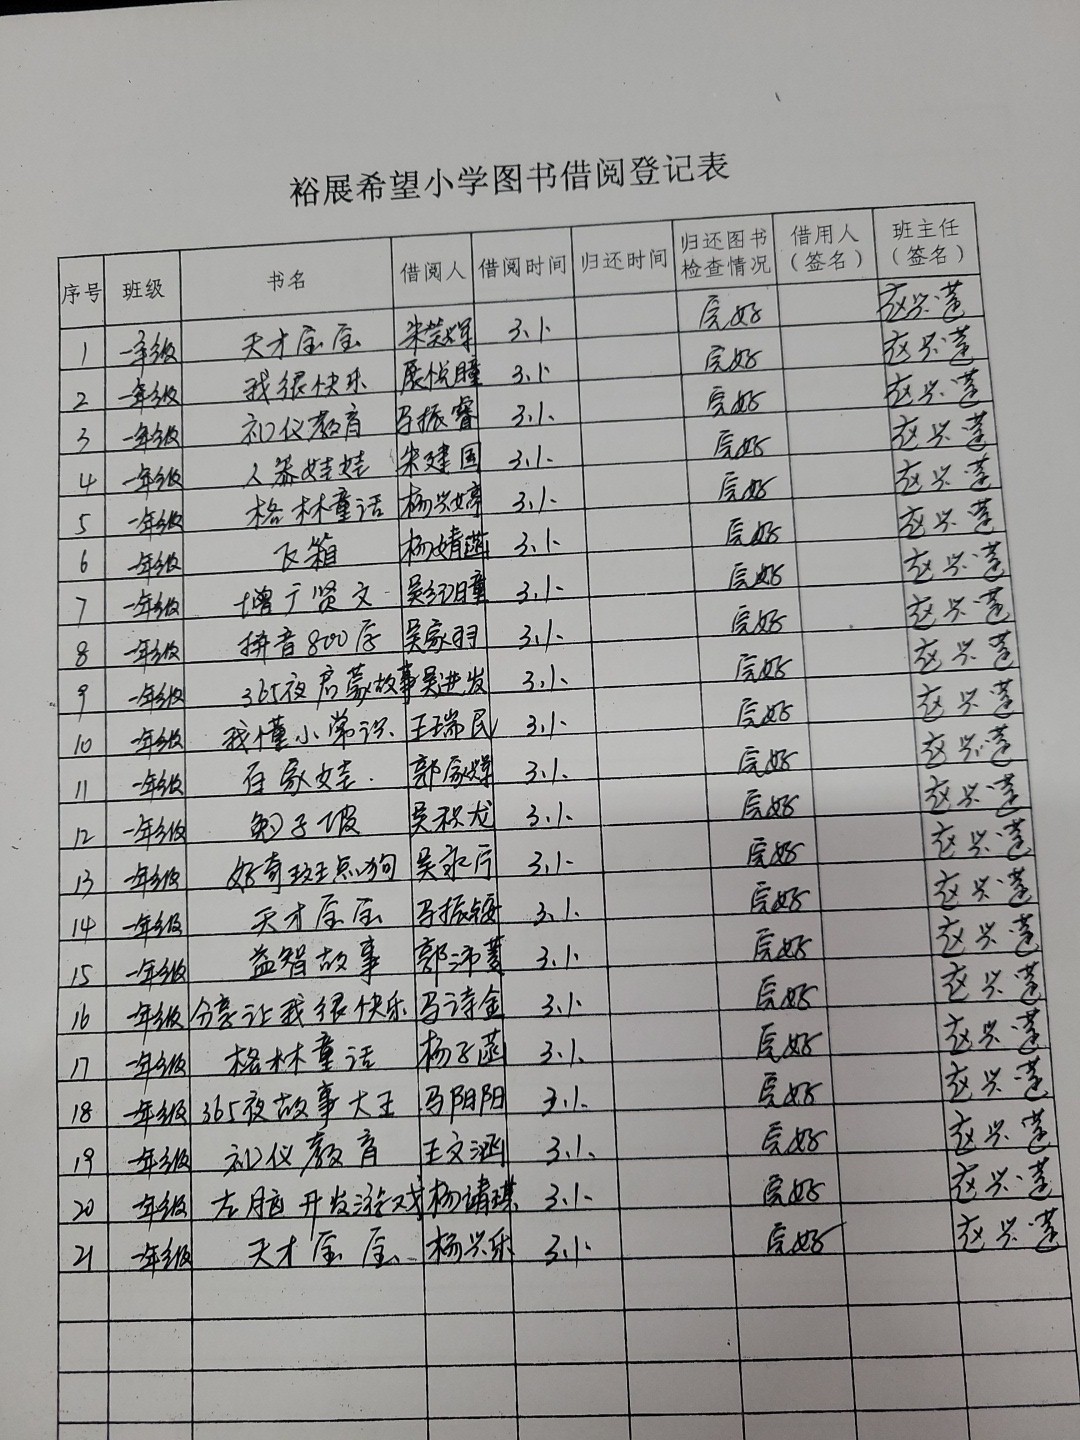 裕展希望小学图书借阅登记表
序号 班级 书名 借阅人 借阅时间 归还时间 归还图书检查情况 借用人（签名） 班主任（签名）
1 一年级 天才宝宝 朱荣辉 3.1. 完好 赵兴莲
2 一年级 我很快乐 展悦瞳 3.1. 完好 赵兴莲
3 一年级 礼仪教育 马振睿 3.1. 完好 赵兴莲
4 一年级 人参娃娃 朱建国 3.1. 完好 赵兴莲
5 一年级 格林童话 杨兴婷 3.1. 完好 赵兴莲
6 一年级 飞箱 杨婧菡 3.1. 完好 赵兴莲
7 一年级 增广贤文 吴红瞳 3.1. 完好 赵兴莲
8 一年级 拼音800后 吴家羽 3.1. 完好 赵兴莲
9 一年级 365夜启蒙故事 吴进发 3.1. 完好 赵兴莲
10 一年级 我懂小常识 王瑞民 3.1. 完好 赵兴莲
11 一年级 百家娃 郭家辉 3.1. 完好 赵兴莲
12 一年级 兔子坡 吴积龙 3.1. 完好 赵兴莲
13 一年级 好奇斑点狗 吴永厅 3.1. 完好 赵兴莲
14 一年级 天才宝宝 马振 3.1. 完好 赵兴莲
15 一年级 益智故事 郭沛菱 3.1. 完好 赵兴莲
16 一年级 分享让我很快乐 马诗金 3.1. 完好 赵兴莲
17 一年级 格林童话 杨子菡 3.1. 完好 赵兴莲
18 一年级 365夜故事大王 马阳阳 3.1. 完好 赵兴莲
19 一年级 礼仪教育 王文涵 3.1. 完好 赵兴莲
20 一年级 左脑开发游戏 杨靖琪 3.1. 完好 赵兴莲
21 一年级 天才宝宝 杨兴乐 3.1. 完好 赵兴莲